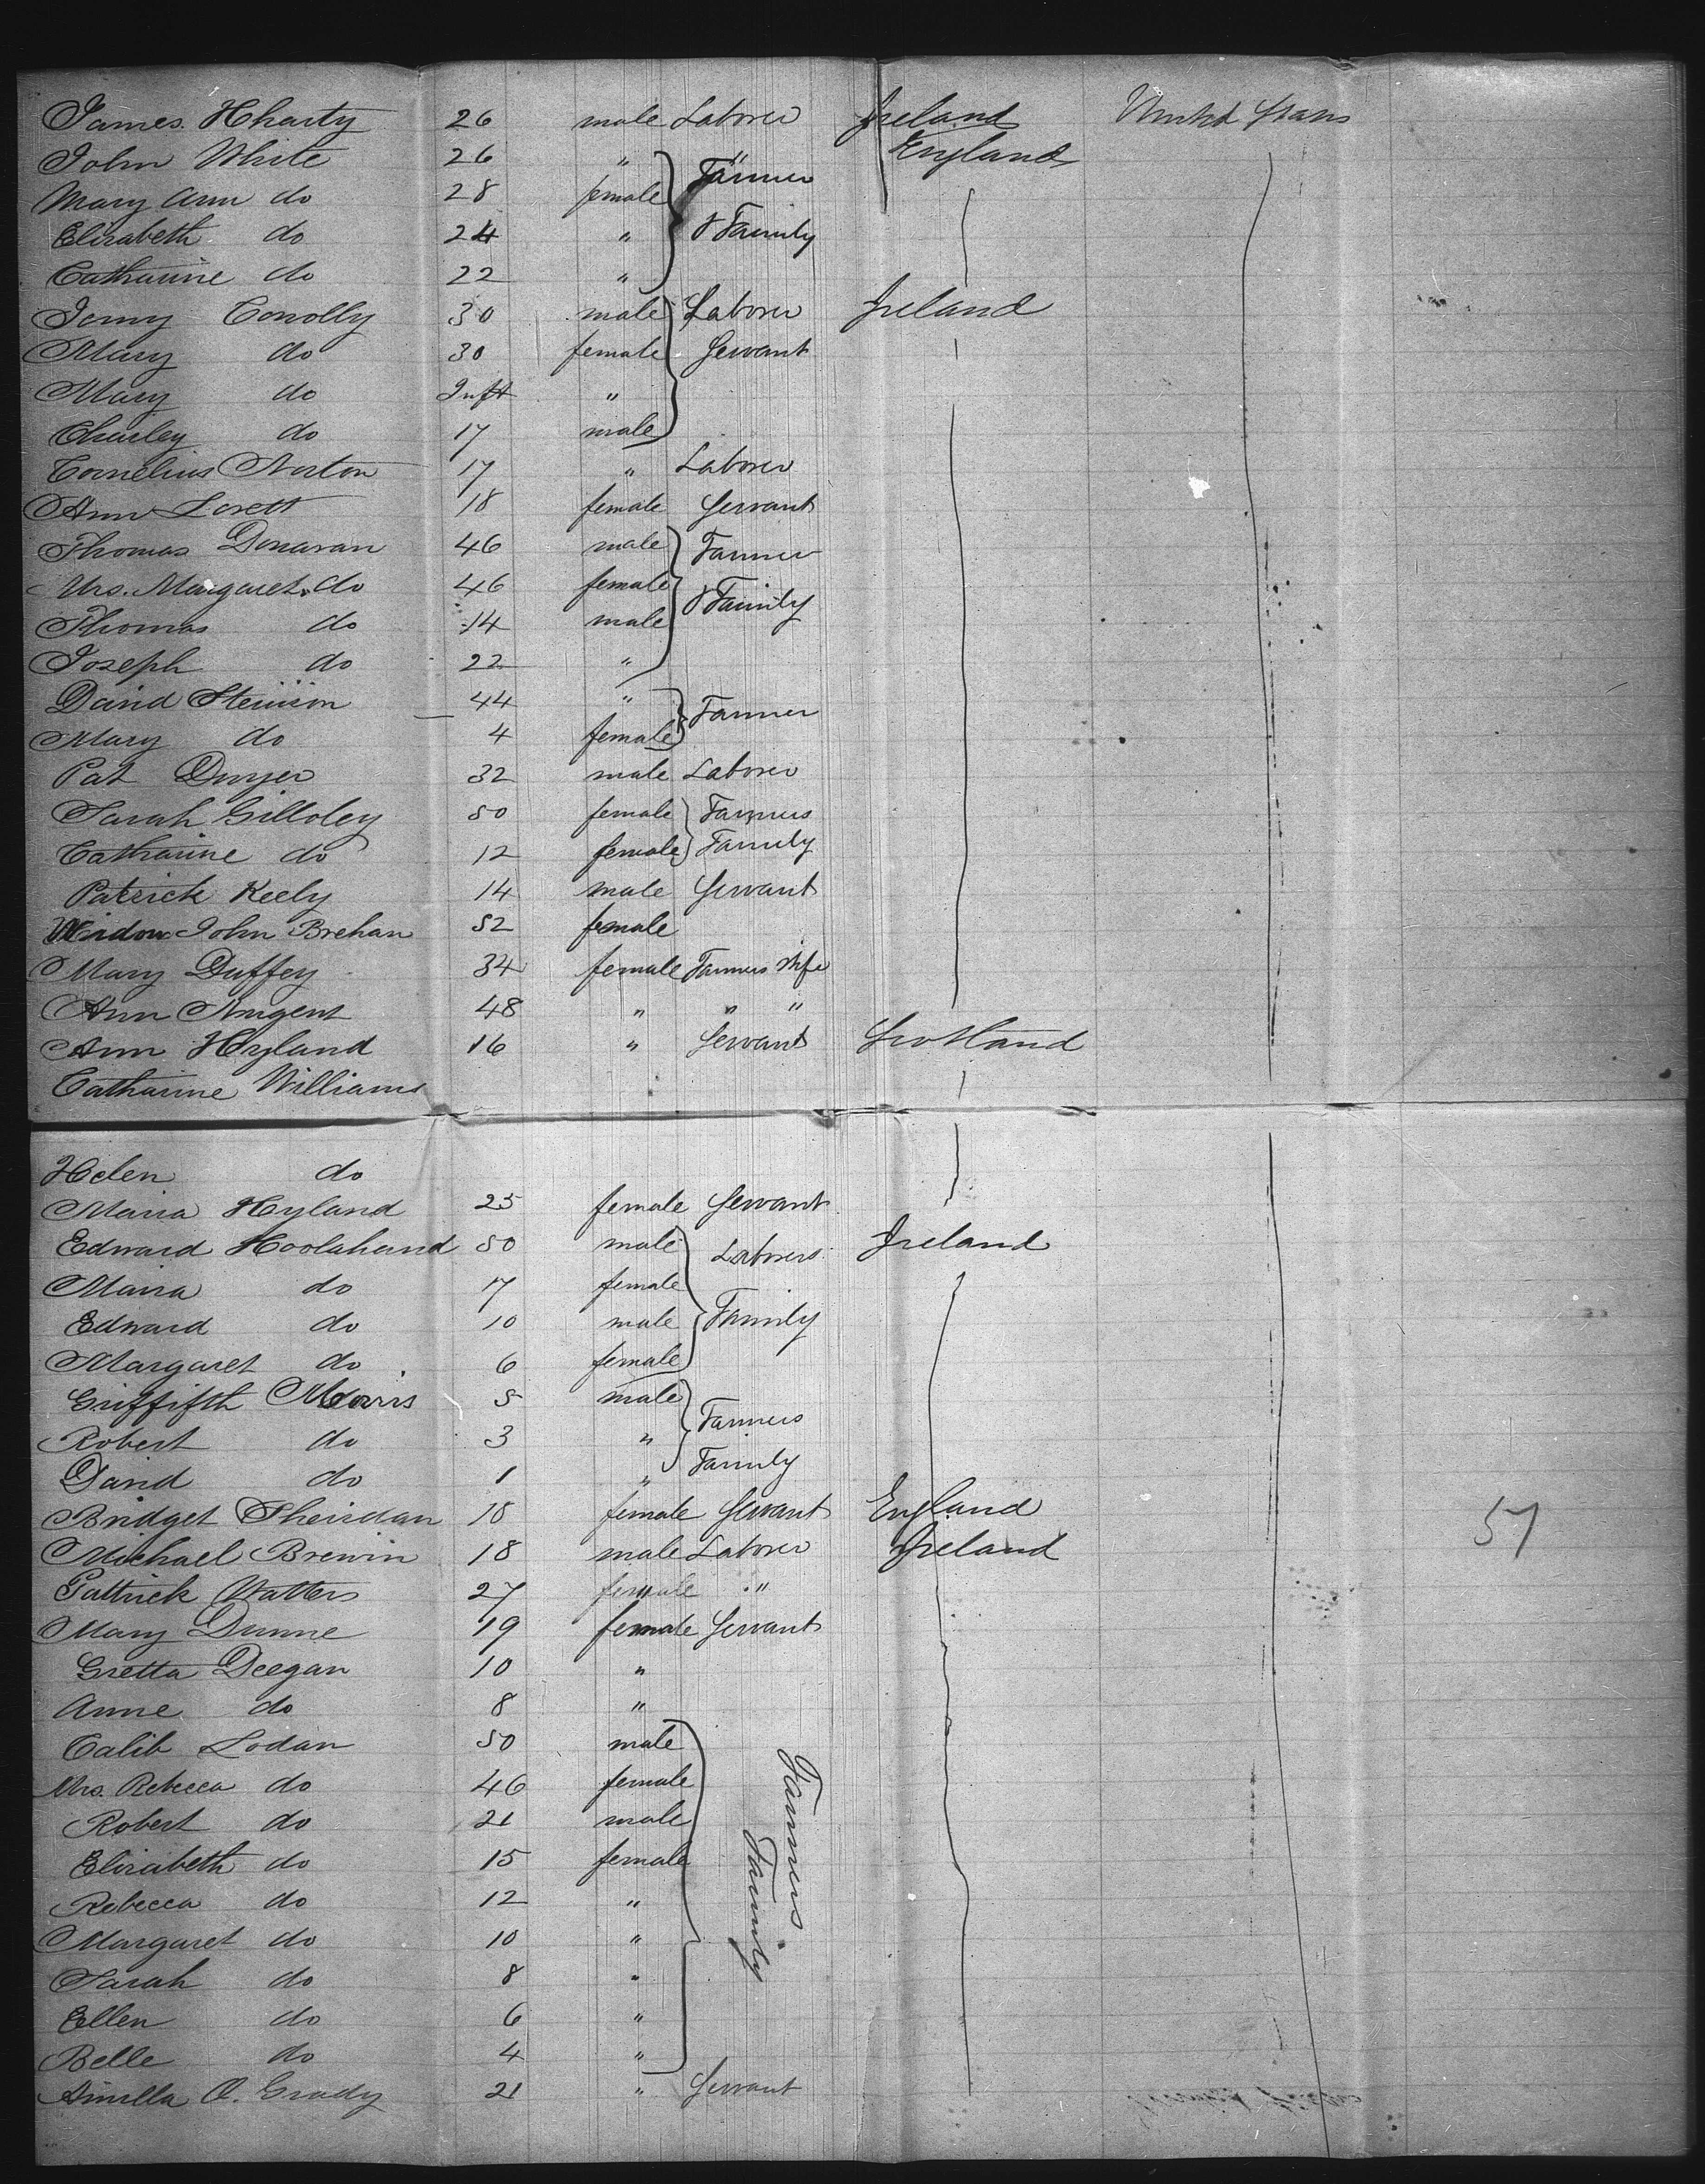 James Hharty 26 male Laborer Ireland United States
John White 26 " " England
Mary Ann do 28 female } Farmer
Elizabeth do 24 " & Family
Catharine do 22 "
Jerry Conolly 30 male Laborer Ireland
Mary do 30 female Servant
Mary do Inft "
Charley do 17 male
Cornelius Norton 17 " Laborer
Ann Lovett 18 female Servant
Thomas Donavan 46 male } Farmer
Mrs. Margaret do 46 female & Family
Thomas do 14 male
Joseph do 22 "
David 44 " } Farmer
Mary do 4 female
Pat Dwyer 32 male Laborer
Sarah Gilloley 50 female } Farmers
Catharine do 12 female } Family
Patrick Keely 14 male Servant
Widow John Brehan 52 female
Mary Duffey 34 female Farmers Wife
Ann Nugent 48 " " "
Ann Hyland 16 " Servant Scotland
Catharine Williams
Helen do
Maria Hyland 25 female Servant
Edward Hoolahand 50 male } Laborers Ireland
Maria do 17 female
Edward do 10 male Family
Margaret do 6 female
Griffifth Morris 5 male } Farmers
Robert do 3 "
David do 1 " Family
Bridget Sheirdan 18 female Servant England
Michael Brewin 18 male Laborer Ireland 57
Pattrick Watters 27 female "
Mary Dunne 19 female Servant
Gretta Deegan 10 "
Anne do 8 "
Calib Lodan 50 male
Mrs. Rebecca do 46 female
Robert do 21 male
Elizabeth do 15 female } Farmers Family
Rebecca do 12 "
Margaret do 10 "
Sarah do 8 "
Ellen do 6 "
Belle do 4 "
O. Grady 21 " Servant